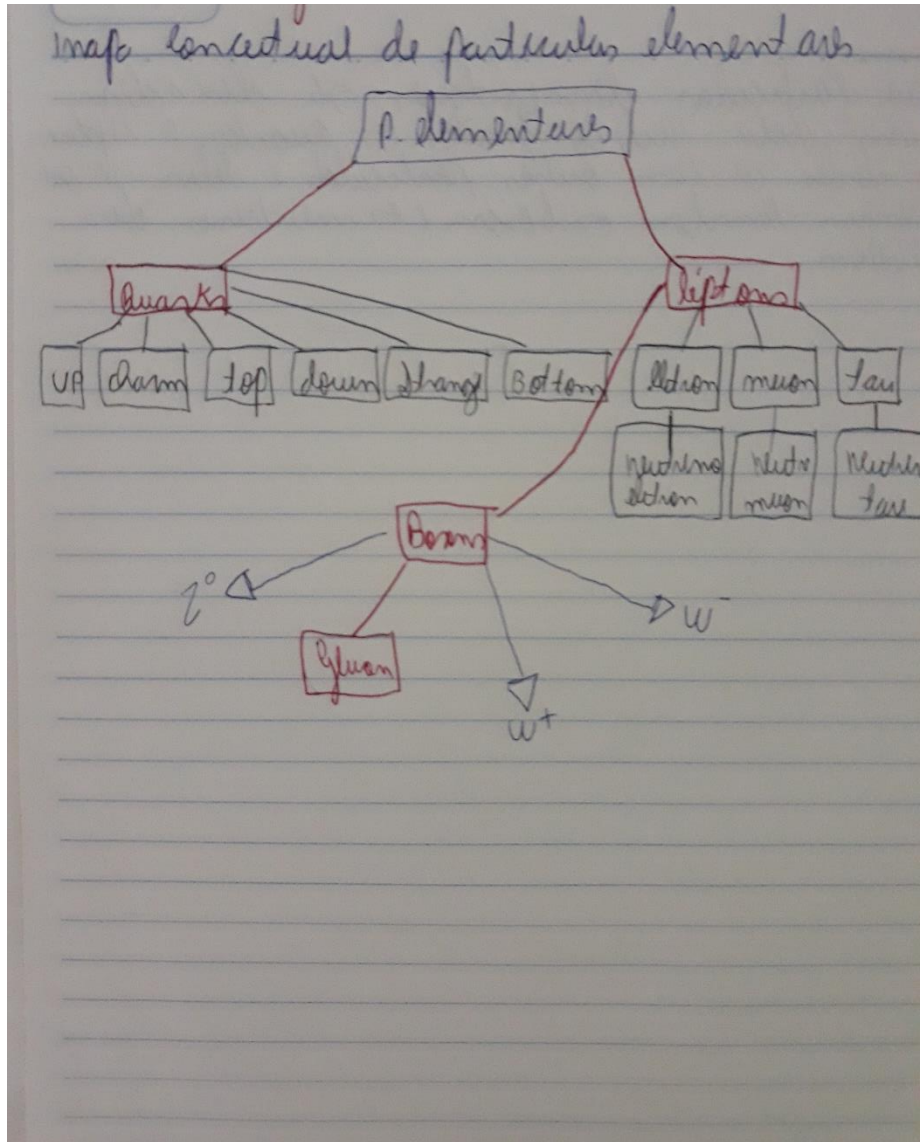 mapa conceitual de partículas elementares
P. elementares
Quarks
léptons
UP
charm
top
down
Strange
Bottom
elétron
muon
tau
neutrino
elétron
neutri
muon
neutrin
tau
Bosons
Z⁰
W⁻
Gluon
W⁺